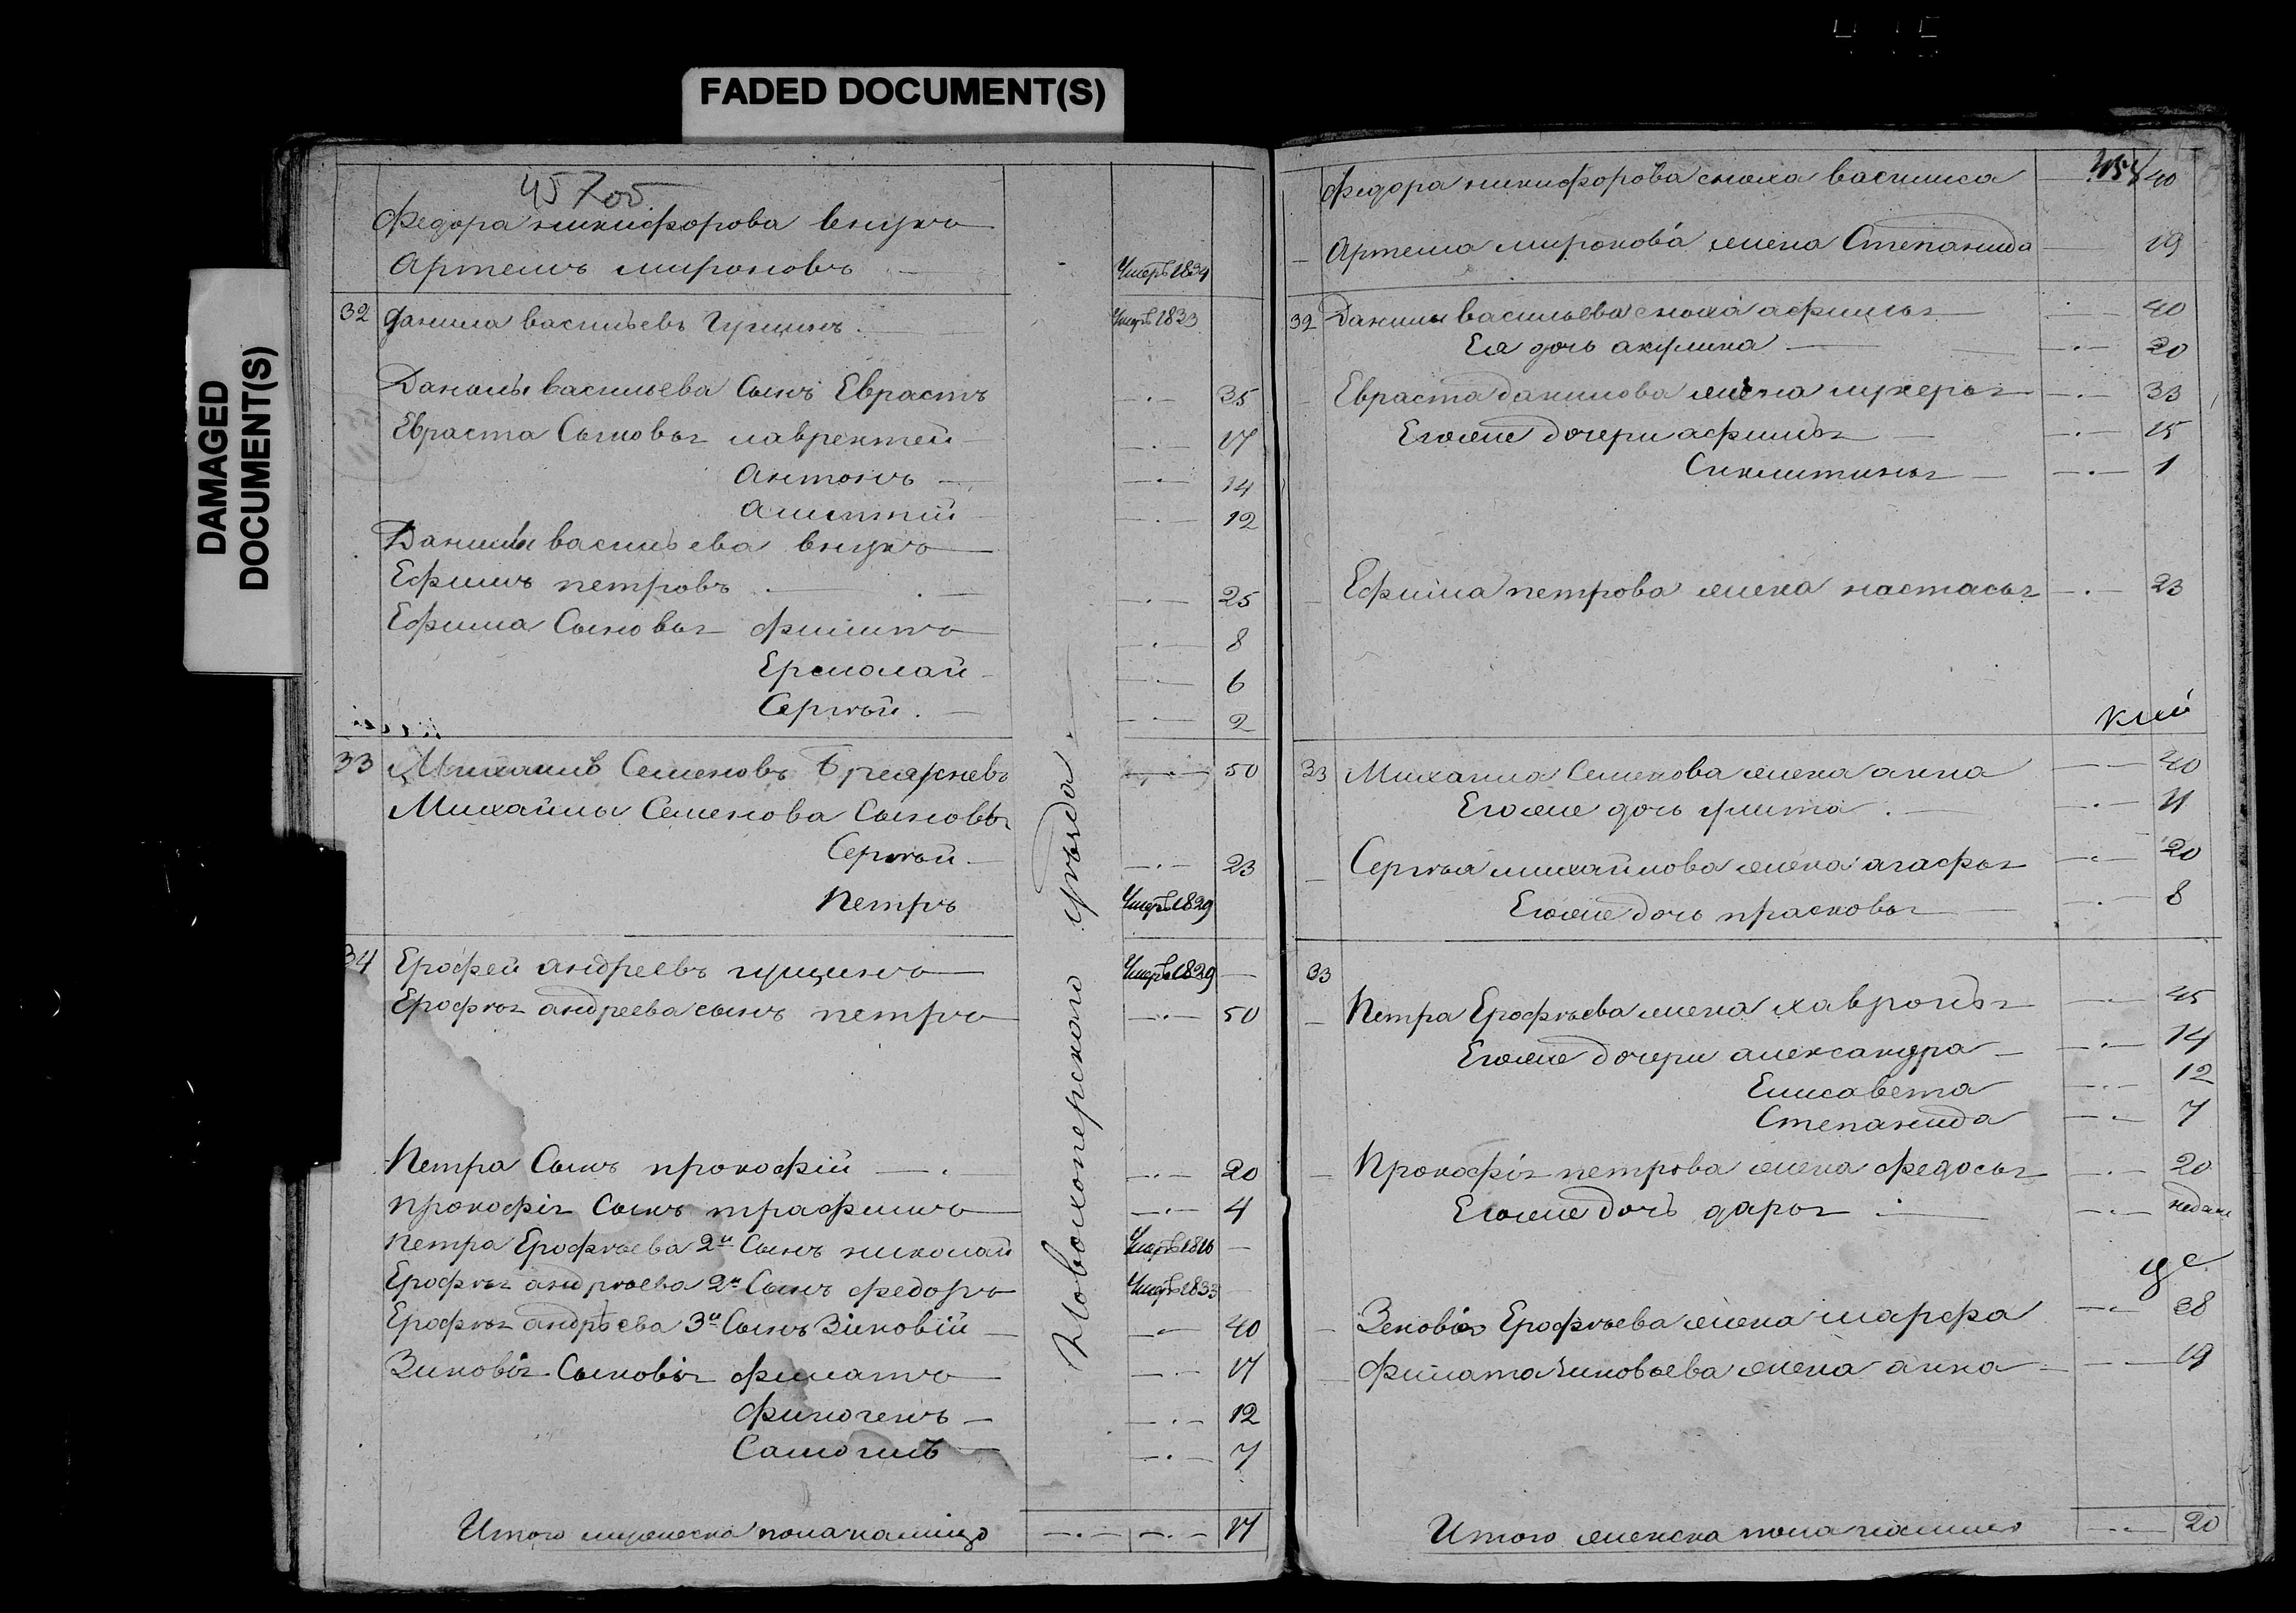 FADED DOCUMENT(S)
DAMAGED
DOCUMENT(S)
45
Федора никифорова внукъ
Артемъ мироновъ — Умеръ 1834
32 Данила васильевъ Гущинъ. Умеръ 1833
Данилы васильева Сынъ Еврастъ — 35
Евраста Сыновья лаврентей — 17
Антонъ — 14
алексѣй — 12
Данилы васильева внукъ
Ефимъ петровъ — 25
Ефима Сыновья филипъ — 8
Ермолай — 6
Сергѣй — 2
33 Михаилъ Семеновъ — 50
Михайлы Семенова Сыновья
Сергѣй — 23
Петръ Умеръ 1829
34 Ерофей андреевъ гущинъ — Умеръ 1829 —
Ерофѣя андреева сынъ петръ — 50
Петра Сынъ прокофій — 20
прокофія Сынъ трафимъ — 4
Петра Ерофѣева 2й Сынъ николай Умеръ 1816 —
Ерофѣя андрѣева 2й Сынъ федоръ Умеръ 1833 —
Ерофѣя андрѣева 3й Сынъ Зиновій — 40
Зиновія Сыновья филатъ — 17
финогенъ — 12
Самоилъ — 7
Итого мужеска пола налицо — 17
Новохоперскаго уѣзда.
Федора никифорова сноха василиса — 40
Артема миронова жена Степанида — 19
32 Данилы васильева сноха афимья — 40
Ея дочь акулина — 20
Евраста данилова жена лукерья — 33
Егоже дочери афимья — 15
Сиклитинья — 1
Ефима петрова жена настасья — 23
33 Михаила Семенова жена анна — 40
Егоже дочь улита — 11
Сергѣя михайлова жена агафья — 20
Егоже дочь прасковья — 8
33
Петра Ерофѣева жена хавронья — 45
Егоже дочери александра — 14
Елисавета — 12
Степанида — 7
Прокофія петрова жена федосья — 20
Егоже дочь дарья —
Зеновія Ерофѣева жена марфа — 38
филата Зиновьева жена анна — 19
Итого женска пола налицо — 20